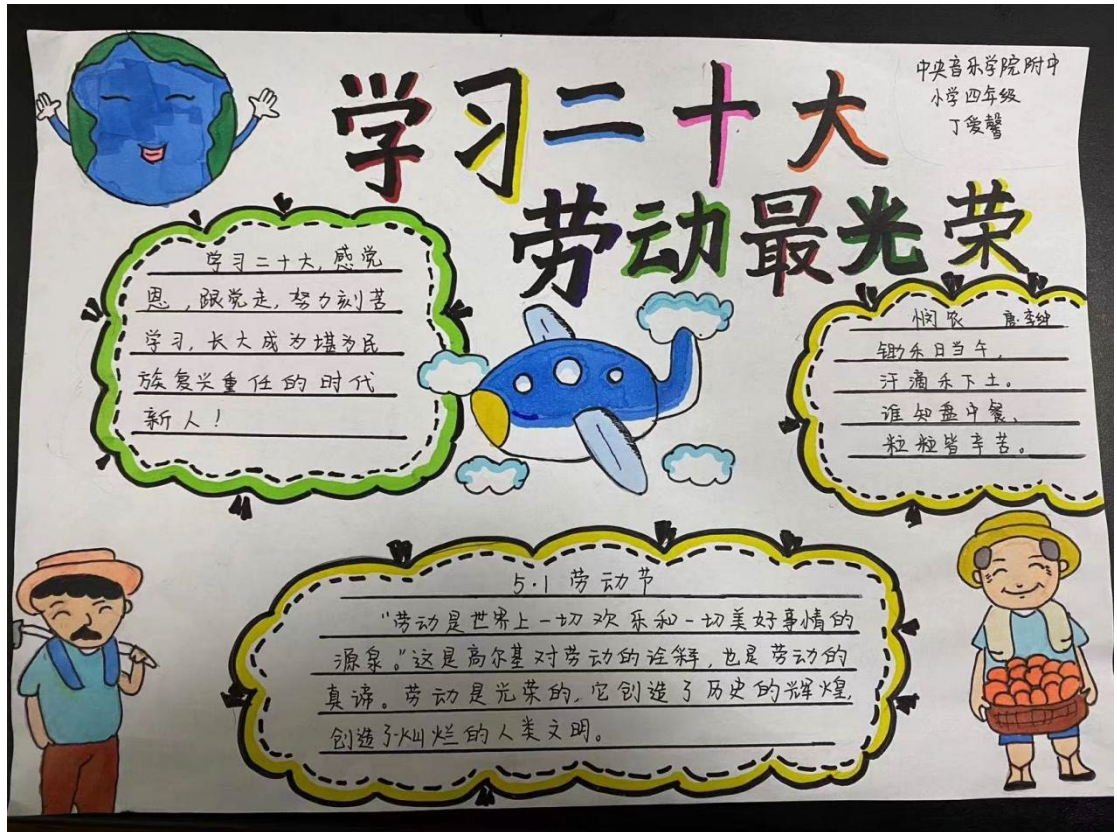 学习二十大
劳动最光荣
中央音乐学院附中
小学四年级
丁爱馨
学习二十大,感党
恩,跟党走,努力刻苦
学习,长大成为堪为民
族复兴重任的时代
新人!
悯农 唐·李绅
锄禾日当午,
汗滴禾下土。
谁知盘中餐,
粒粒皆辛苦。
5·1劳动节
“劳动是世界上一切欢乐和一切美好事情的
源泉。”这是高尔基对劳动的诠释,也是劳动的
真谛。劳动是光荣的,它创造了历史的辉煌,
创造了灿烂的人类文明。